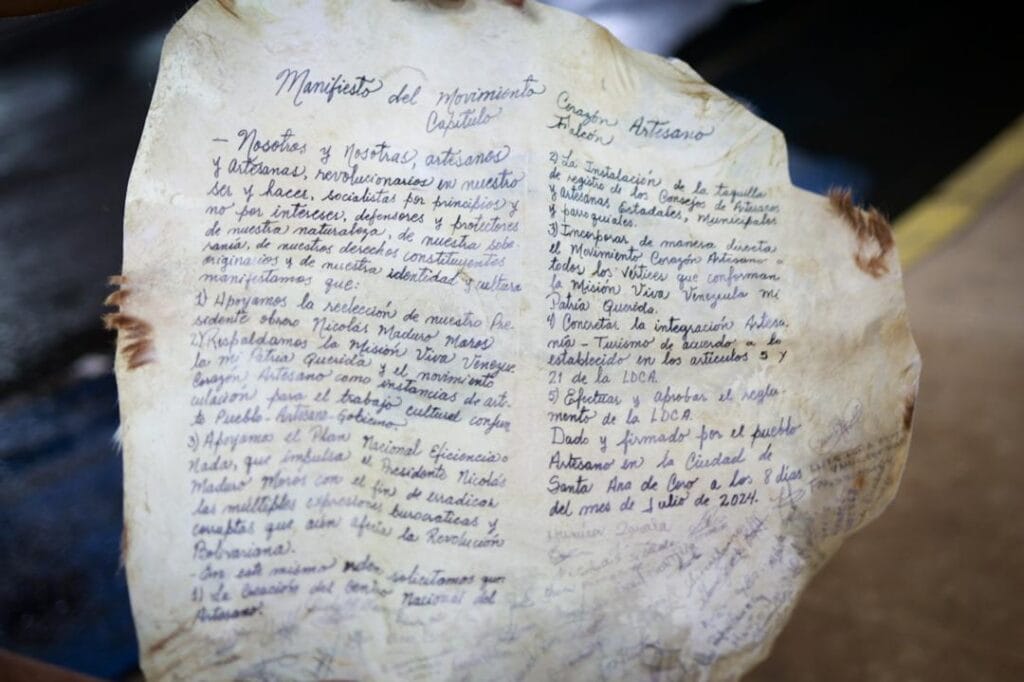 Manifiesto del Movimiento Corazón Artesano
Capitulo Falcón
- Nosotros y Nosotras, artesanos
y Artesanas, revolucionarios en nuestro
ser y hacer, socialistas por principios y
no por intereses, defensores y protectores
de nuestra naturaleza, de nuestra sobe-
rania, de nuestros derechos constituyentes
originarios y de nuestra identidad y cultura
manifestamos que:
1) Apoyamos la reelección de nuestro Pre-
sidente obrero Nicolás Maduro Moros
2) Respaldamos la Misión Viva Venezue-
la mi Patria Querida y el movimiento
Corazón Artesano como instancias de arti-
culación para el trabajo cultural conjun
to Pueblo-Artesano-Gobierno
3) Apoyamos el Plan Nacional Eficiencia o
Nada, que impulsa el Presidente Nicolás
Maduro Moros con el fin de erradicar
las multiples expresiones burocraticas y
corruptas que aún afecta la Revolución
Bolivariana.
- En este mismo orden solicitamos que:
1) La Creación del Centro Nacional del
Artesano.
2) La Instalación de la taquilla
de registro de los Consejos de Artesanos
y Artesanas Estadales, Municipales
y parroquiales.
3) Incorporar de manera directa
el Movimiento Corazón Artesano a
todos los Vértices que conforman
la Misión Viva Venezuela mi
Patria Querida.
4) Concretar la integración Artesa-
nía - Turismo de acuerdo a lo
establecido en los artículos 5 y
21 de la LDCA.
5) Efectuar y aprobar el regla-
mento de la LDCA.
Dado y firmado por el pueblo
Artesano en la Ciudad de
Santa Ana de Coro a los 8 dias
del mes de Julio de 2024.